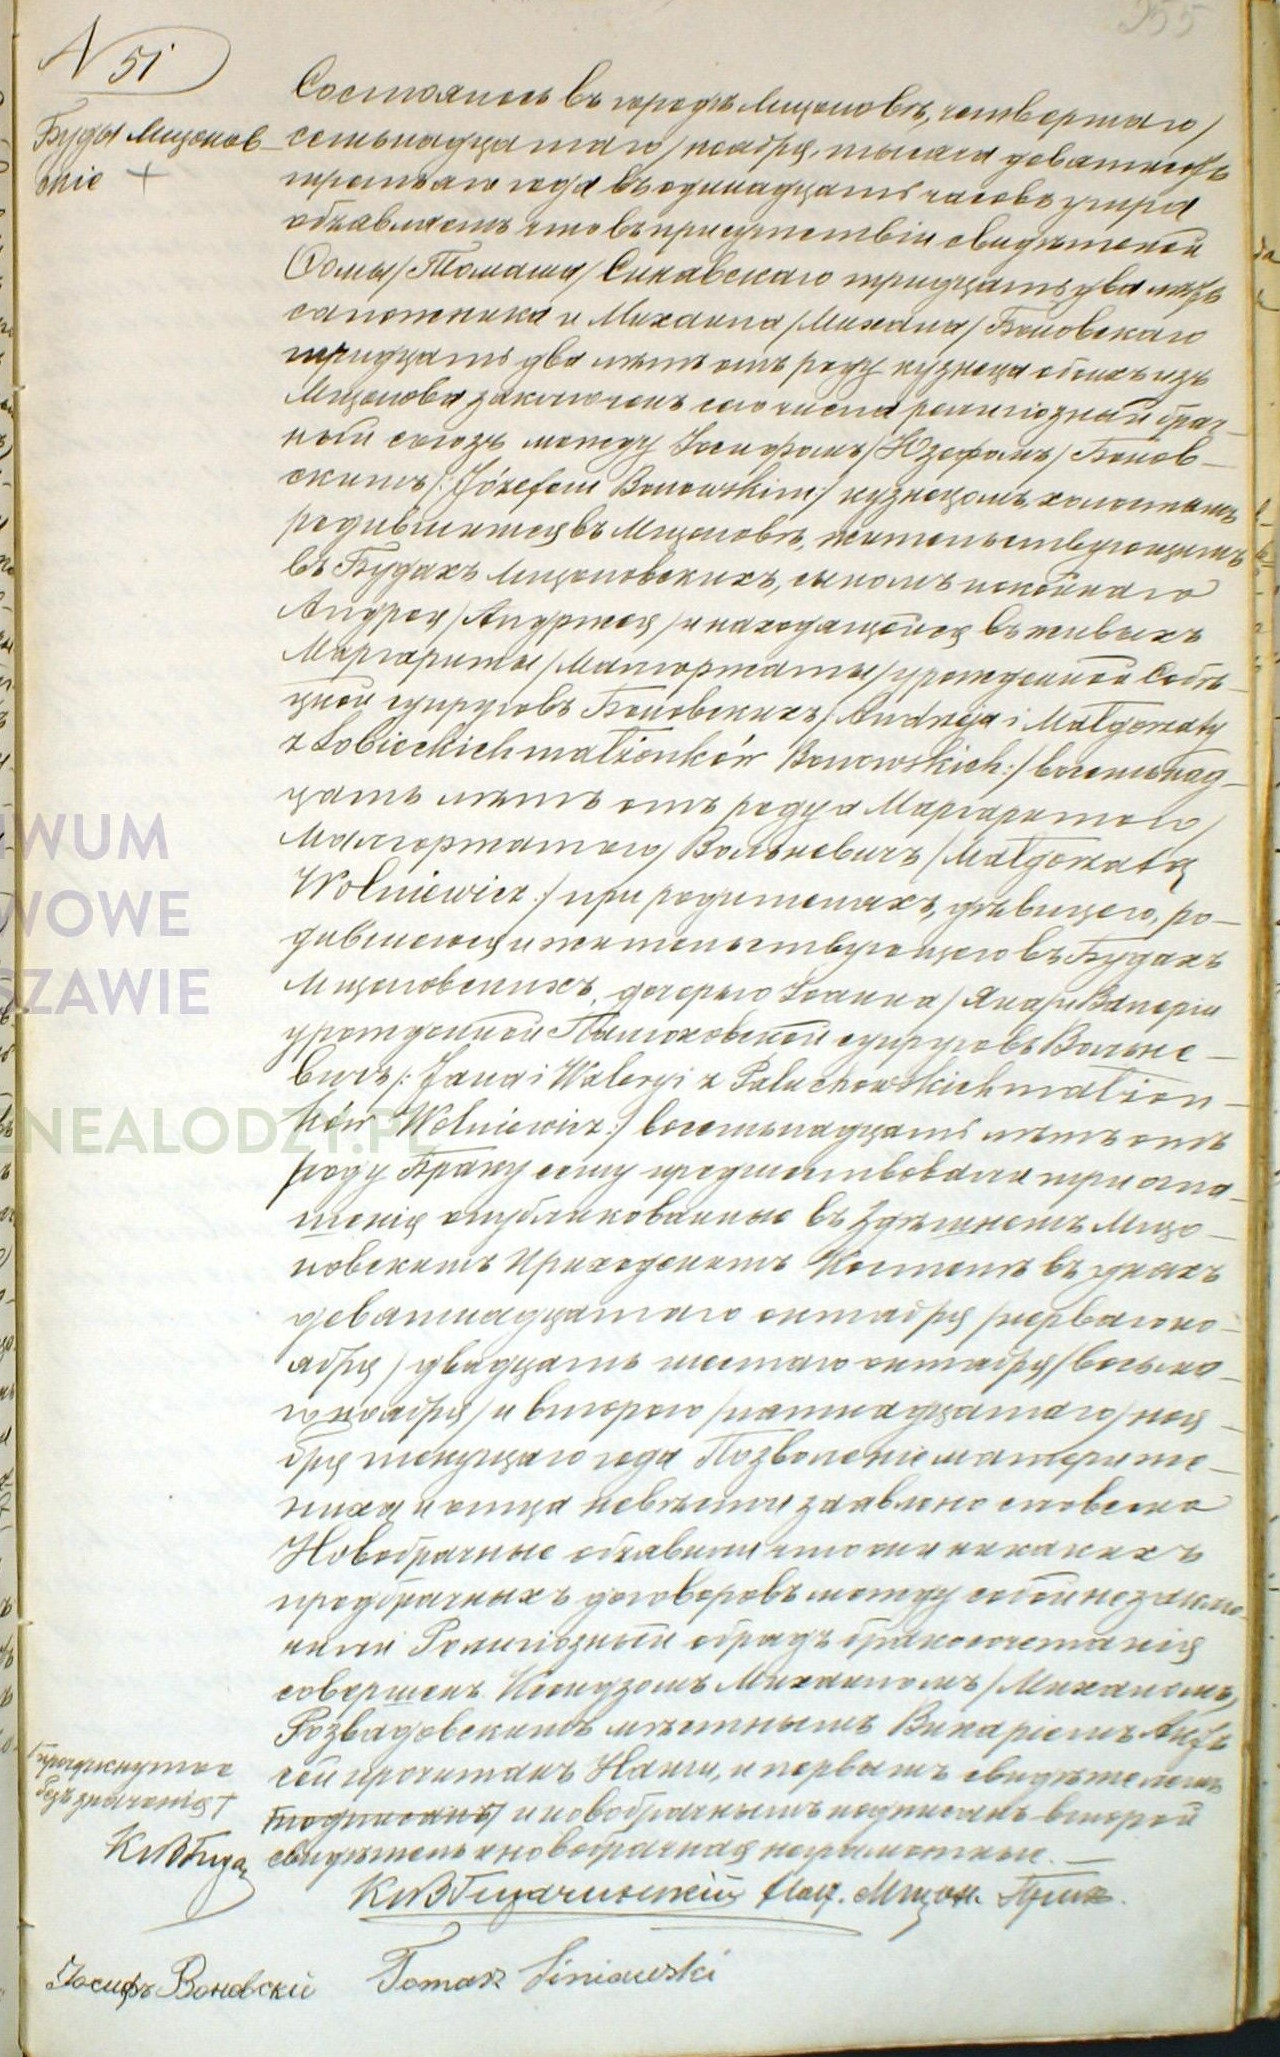 355
N 51
Буды Мщонов-
скіе +
Состоялось въ городѣ Мщоновѣ, четвертаго/
семьнадцатаго/ ноября, тысяча девятьсотъ
третьяго года въ одинадцать часовъ утра
объявляемъ что въ присутствіи свидѣтелей
Ѳомы/Томаша/ Синявскаго тридцать два лѣтъ
сапожника и Михаила/Михала/ Боновскаго
тридцать два лѣтъ отъ роду кузнеца обоихъ изъ
Мщонова заключенъ сего числа религіозный брач-
ный союзъ между Іосифомъ/Юзефомъ/ Бонов-
скимъ/: Józefem Bonowskim:/ кузнецомъ, холостымъ
родившимся въ Мщоновѣ, жительствующимъ
въ Будахъ Мщоновскихъ, сыномъ покойнаго
Андрея/Анджея/ и находящейся въ живыхъ
Маргариты/Малгоржаты/ урожденной Собѣ-
цкой супруговъ Боновскихъ/: Andrzeja i Małgorzaty
z Sobieckich małżonków Bonowskich:/ восемьнад-
цать лѣтъ отъ роду а Маргаритою/
Малгоржатою/ Вольневичъ/ Małgorzatą
Wolniewicz:/ при родителяхъ, дѣвицею, ро-
дившеюся и жительствующею въ Будахъ
Мщоновскихъ, дочерью Іоанна/Яна/ и Валеріи
урожденной Палюховской супруговъ Вольне-
вичъ/: Jana i Waleryi z Paluchowskich małżon-
ków Wolniewicz:/ восемьнадцать лѣтъ отъ
роду Браку сему предшествовали три огла-
шенія опубликованные въ здѣшнемъ Мщо-
новскимъ Приходскимъ Костелѣ въ дняхъ
девятнадцатаго октября/перваго но-
ября/ двадцать шестаго октября/восьма-
го ноября/ и втораго/пятнадцатаго/ ноя-
бря текущаго года Позволеніе матери же-
ниха и отца невѣсты заявлено словесно
Новобрачные объявили что они никакихъ
предбрачныхъ договоровъ между собой не заклю-
чили Религіозный обрядъ бракосочетанія
совершенъ Ксендзомъ Михаиломъ/Михаломъ,
Розвадовскимъ мѣстнымъ Викаріемъ Актъ
сей прочитанъ Нами, и первымъ свидѣтелемъ
подписанъ/ и новобрачнымъ подписанъ второй
свидѣтель и новобрачная неграмотные. —
без значенія +
Мщон.
Іосифъ Боновскій
Tomasz Siniawski
IWUM
WOWE
SZAWIE
NEALODZY.PL